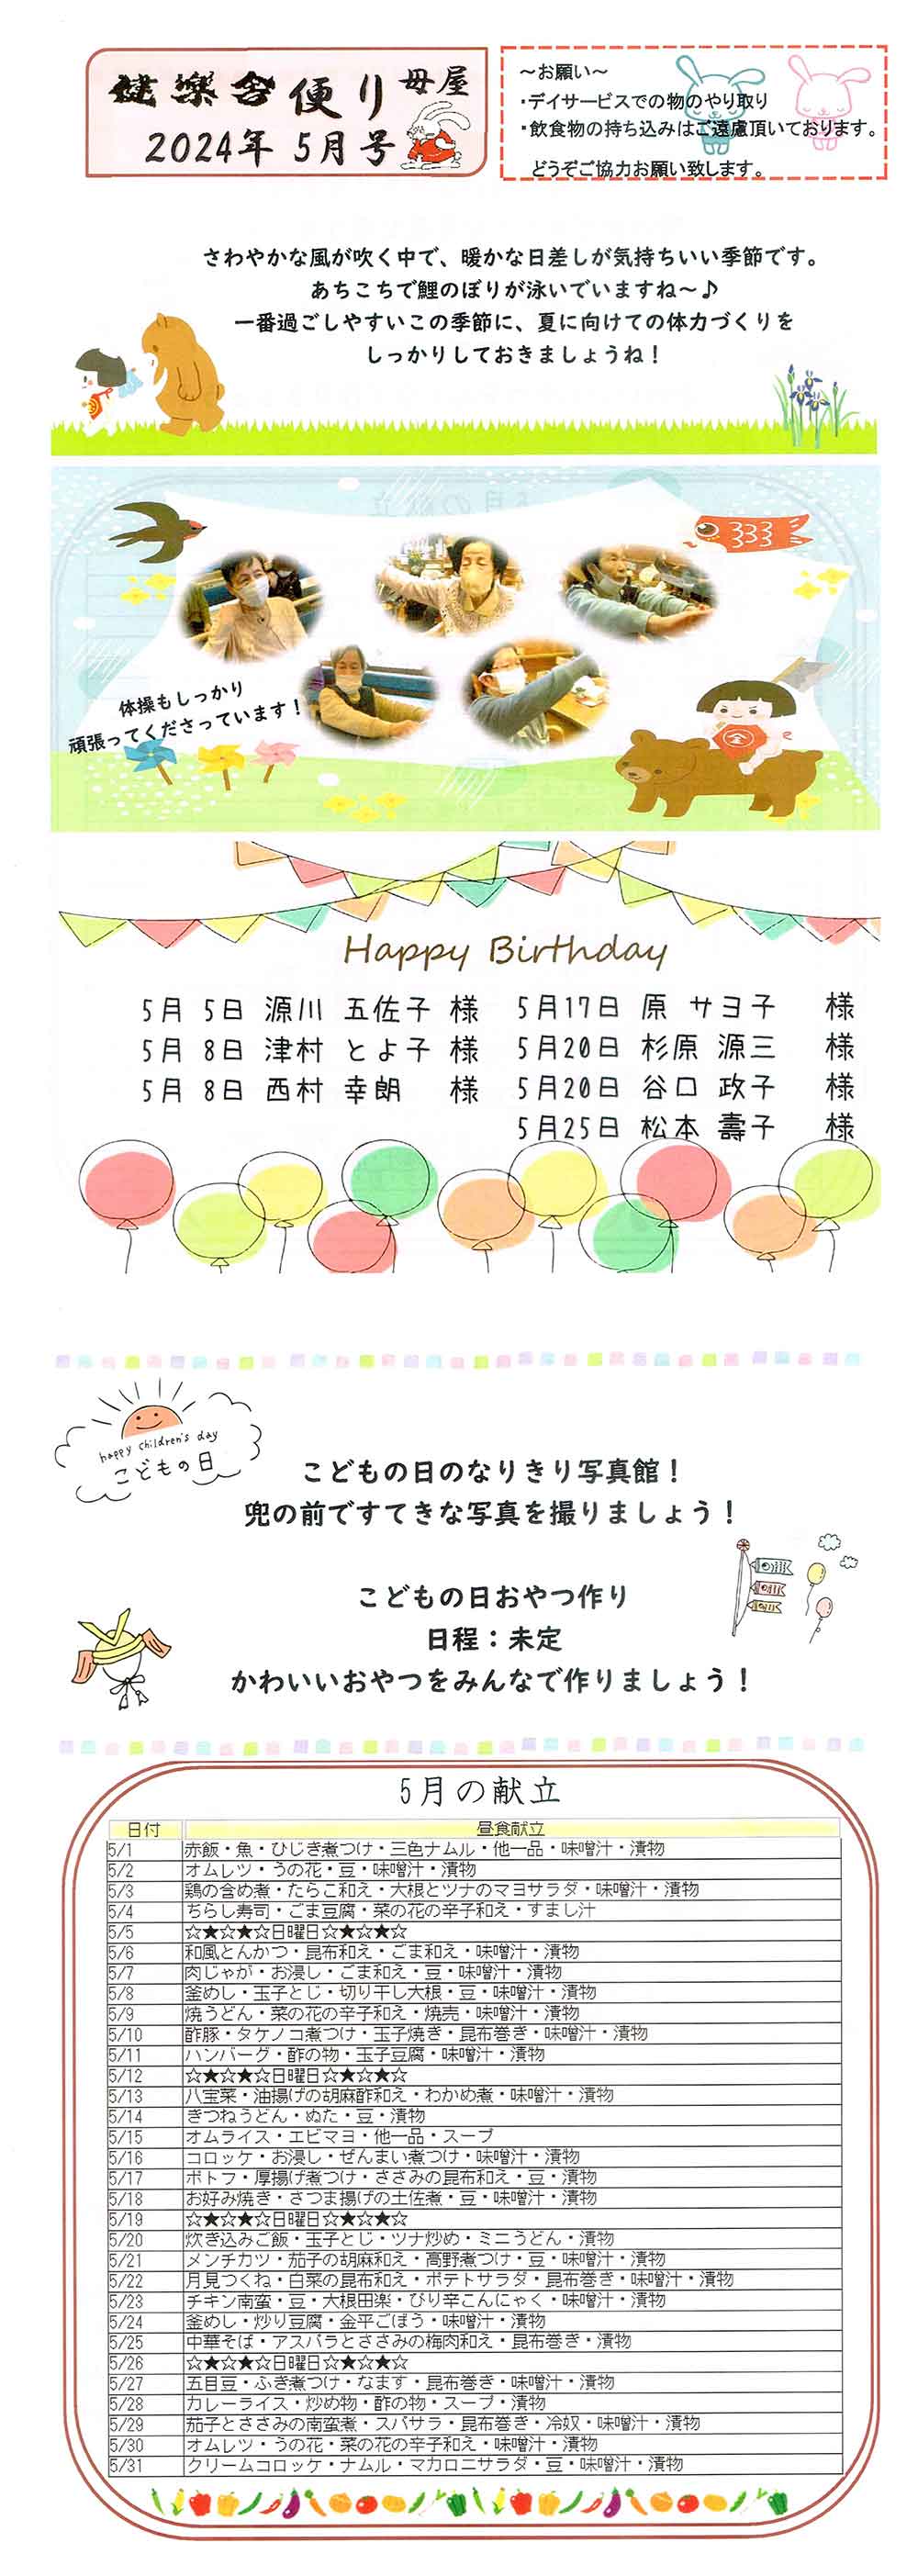 健樂舎便り 母屋
2024年 5月号
～お願い～
・デイサービスでの物のやり取り
・飲食物の持ち込みはご遠慮頂いております。
どうぞご協力お願い致します。
さわやかな風が吹く中で、暖かな日差しが気持ちいい季節です。
あちこちで鯉のぼりが泳いでいますね～♪
一番過ごしやすいこの季節に、夏に向けての体力づくりを
しっかりしておきましょうね！
体操もしっかり
頑張ってくださっています！
金
Happy Birthday
5月 5日 源川 五佐子 様
5月 8日 津村 とよ子 様
5月 8日 西村 幸朗 様
5月17日 原 サヨ子 様
5月20日 杉原 源三 様
5月20日 谷口 政子 様
5月25日 松本 壽子 様
happy children's day
こどもの日
こどもの日のなりきり写真館！
兜の前ですてきな写真を撮りましょう！
こどもの日おやつ作り
日程：未定
かわいいおやつをみんなで作りましょう！
5月の献立
日付 昼食献立
5/1 赤飯・魚・ひじき煮つけ・三色ナムル・他一品・味噌汁・漬物
5/2 オムレツ・うの花・豆・味噌汁・漬物
5/3 鶏の含め煮・たらこ和え・大根とツナのマヨサラダ・味噌汁・漬物
5/4 ちらし寿司・ごま豆腐・菜の花の辛子和え・すまし汁
5/5 ☆★☆★☆日曜日☆★☆★☆
5/6 和風とんかつ・昆布和え・ごま和え・味噌汁・漬物
5/7 肉じゃが・お浸し・ごま和え・豆・味噌汁・漬物
5/8 釜めし・玉子とじ・切り干し大根・豆・味噌汁・漬物
5/9 焼うどん・菜の花の辛子和え・焼売・味噌汁・漬物
5/10 酢豚・タケノコ煮つけ・玉子焼き・昆布巻き・味噌汁・漬物
5/11 ハンバーグ・酢の物・玉子豆腐・味噌汁・漬物
5/12 ☆★☆★☆日曜日☆★☆★☆
5/13 八宝菜・油揚げの胡麻酢和え・わかめ煮・味噌汁・漬物
5/14 きつねうどん・ぬた・豆・漬物
5/15 オムライス・エビマヨ・他一品・スープ
5/16 コロッケ・お浸し・ぜんまい煮つけ・味噌汁・漬物
5/17 ポトフ・厚揚げ煮つけ・ささみの昆布和え・豆・漬物
5/18 お好み焼き・さつま揚げの土佐煮・豆・味噌汁・漬物
5/19 ☆★☆★☆日曜日☆★☆★☆
5/20 炊き込みご飯・玉子とじ・ツナ炒め・ミニうどん・漬物
5/21 メンチカツ・茄子の胡麻和え・高野煮つけ・豆・味噌汁・漬物
5/22 月見つくね・白菜の昆布和え・ポテトサラダ・昆布巻き・味噌汁・漬物
5/23 チキン南蛮・豆・大根田楽・ぴり辛こんにゃく・味噌汁・漬物
5/24 釜めし・炒り豆腐・金平ごぼう・味噌汁・漬物
5/25 中華そば・アスパラとささみの梅肉和え・昆布巻き・漬物
5/26 ☆★☆★☆日曜日☆★☆★☆
5/27 五目豆・ふき煮つけ・なます・昆布巻き・味噌汁・漬物
5/28 カレーライス・炒め物・酢の物・スープ・漬物
5/29 茄子とささみの南蛮煮・スパサラ・昆布巻き・冷奴・味噌汁・漬物
5/30 オムレツ・うの花・菜の花の辛子和え・味噌汁・漬物
5/31 クリームコロッケ・ナムル・マカロニサラダ・豆・味噌汁・漬物